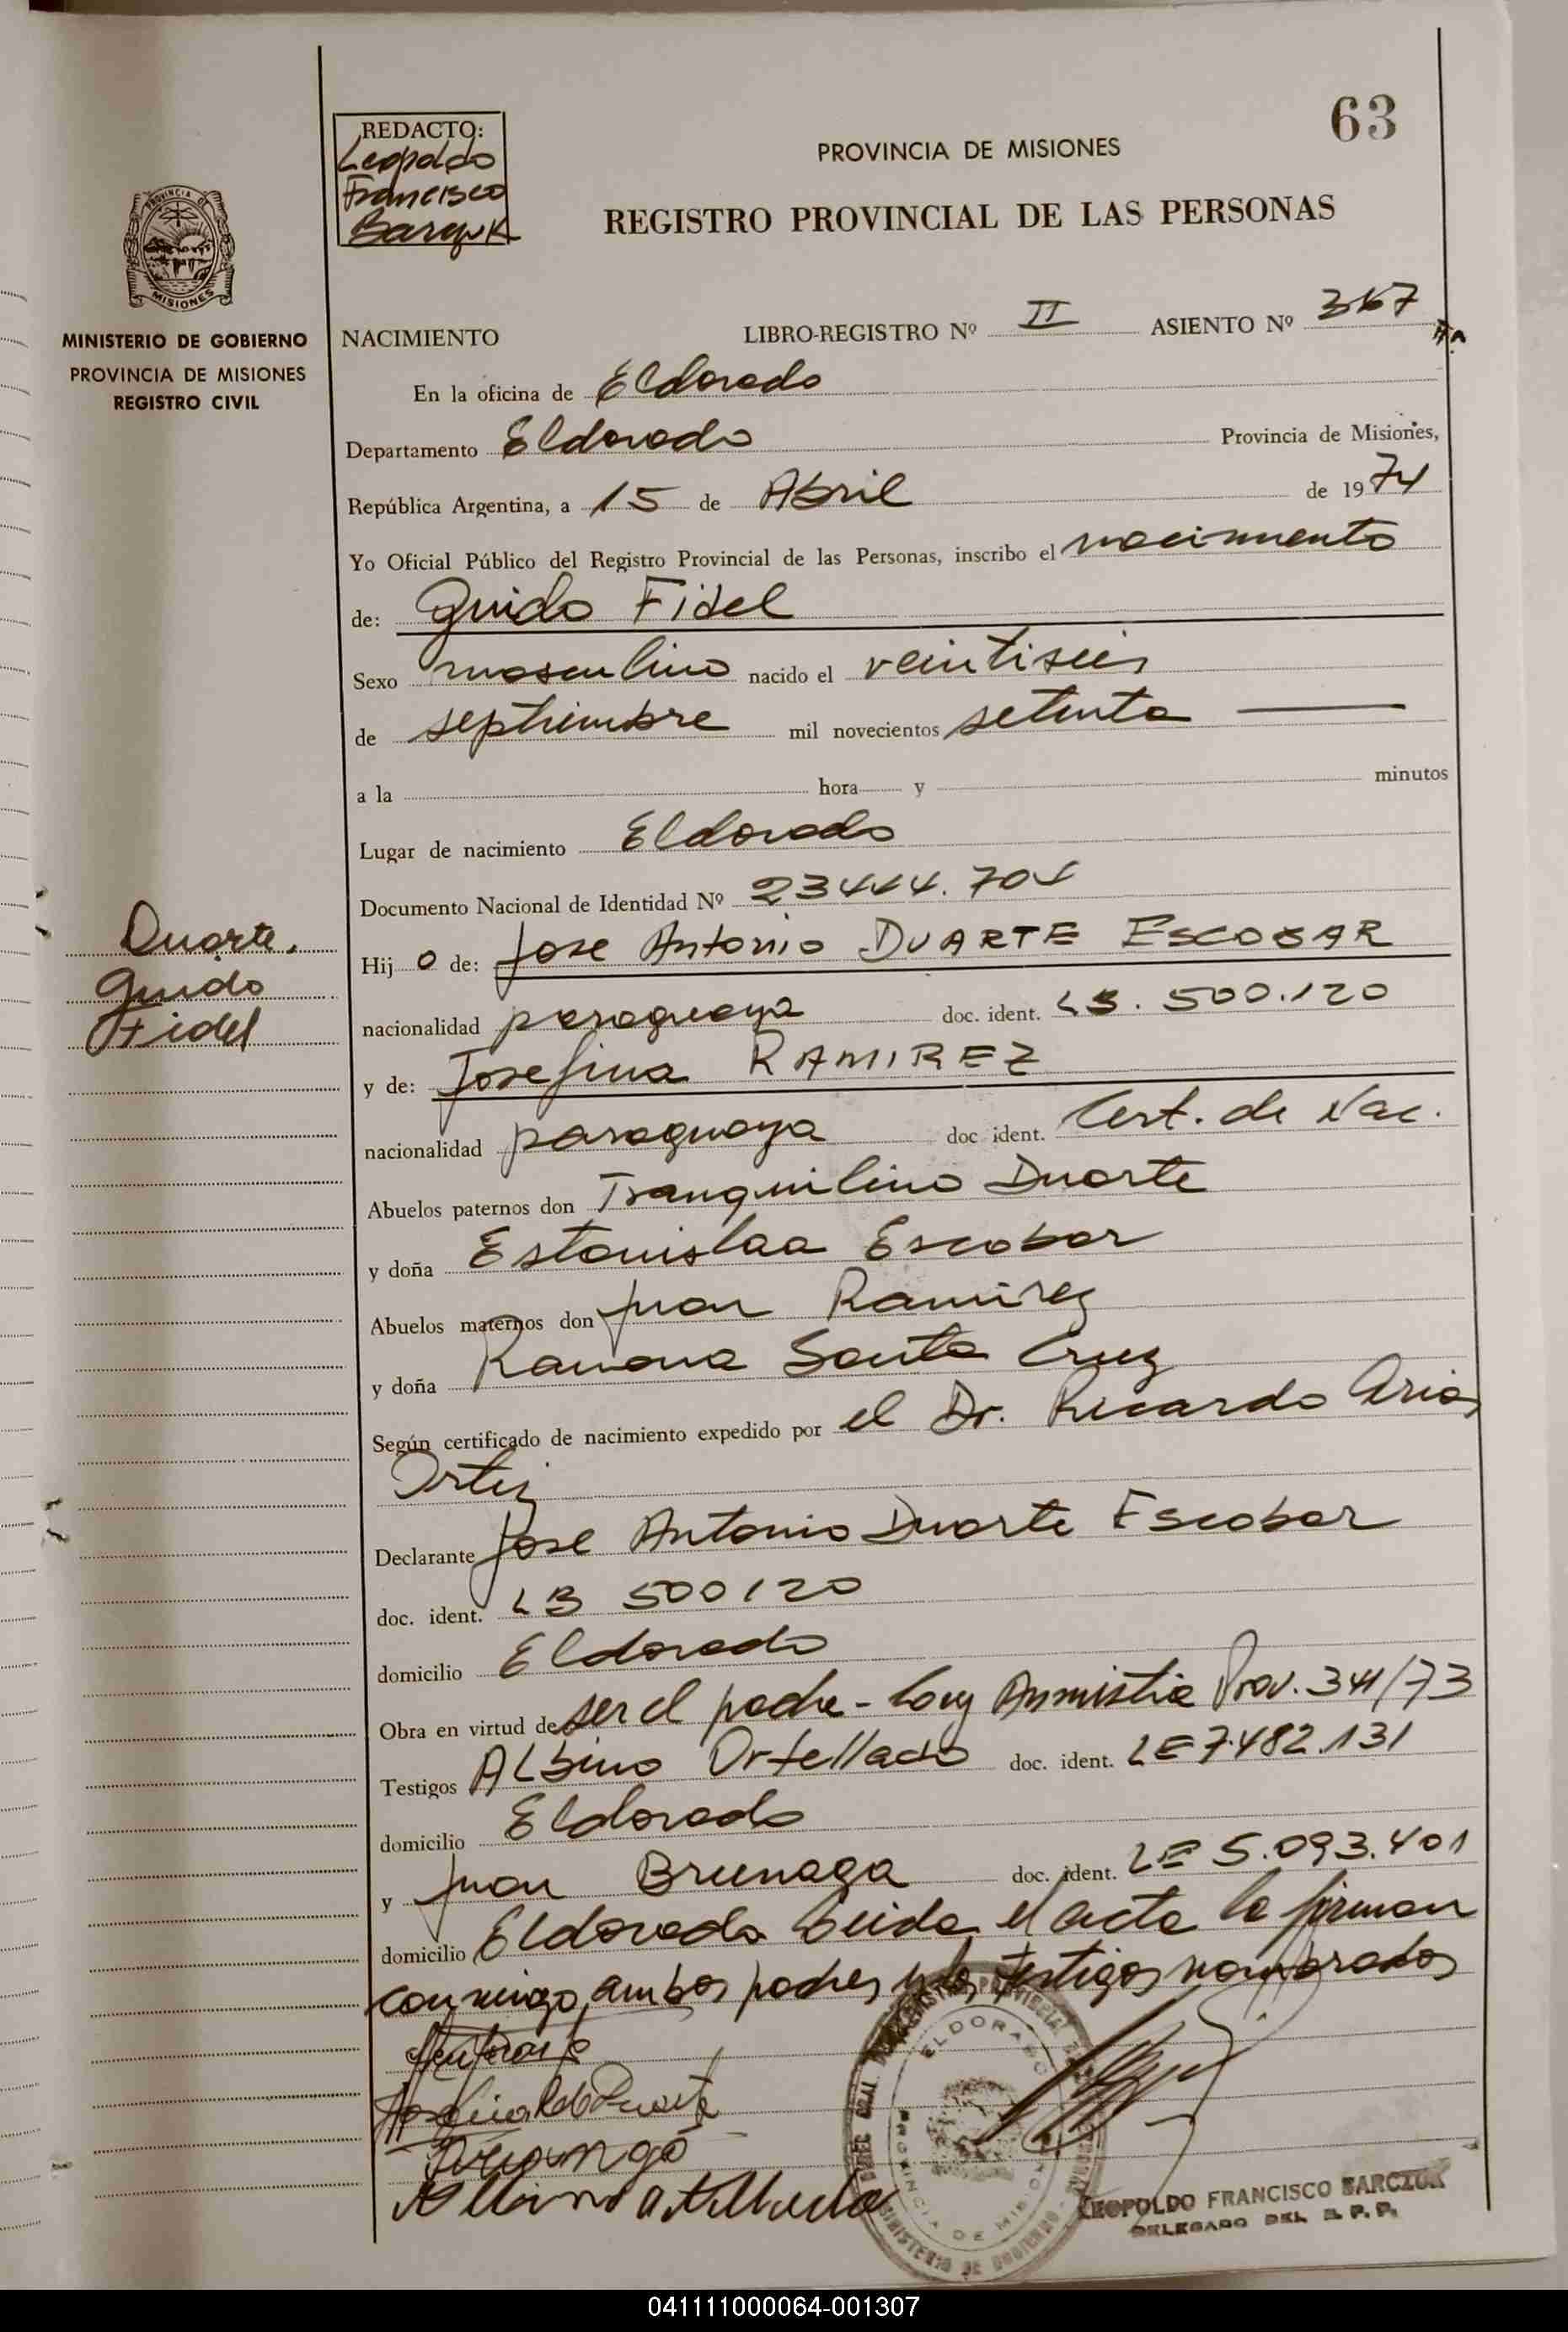 63
REDACTO:
Leopoldo
Francisco
PROVINCIA DE MISIONES
REGISTRO PROVINCIAL DE LAS PERSONAS
MISIONES
MINISTERIO DE GOBIERNO
PROVINCIA DE MISIONES
REGISTRO CIVIL
NACIMIENTO LIBRO-REGISTRO Nº II ASIENTO Nº 367
En la oficina de Eldorado
Departamento Eldorado Provincia de Misiones,
República Argentina, a 15 de Abril de 1974
Yo Oficial Público del Registro Provincial de las Personas, inscribo el nacimiento
de: Guido Fidel
Sexo masculino nacido el veintiseis
de septiembre mil novecientos setenta
a la hora y minutos
Lugar de nacimiento Eldorado
Documento Nacional de Identidad Nº
Duarte,
Guido
Fidel
Hijo de: Jose Antonio DUARTE ESCOBAR
nacionalidad paraguaya doc. ident. LB. 500.120
y de: Josefina RAMIREZ
nacionalidad paraguaya doc ident. Cert. de Nac.
Abuelos paternos don Tranquilino Duarte
y doña Estanislaa Escobar
Abuelos maternos don Juan Ramirez
y doña Ramona Santa Cruz
Según certificado de nacimiento expedido por el Dr. Ricardo Arias
Ortiz
Declarante Jose Antonio Duarte Escobar
doc. ident. LB 500120
domicilio Eldorado
Obra en virtud de ser el padre - Ley Amnistia Prov. /73
Testigos Albino Ortellado doc. ident. LE 7.482.131
domicilio Eldorado
y Juan Brunaga doc. ident. LE 5.093.401
domicilio Eldorado Leida el acta la firman
conmigo, ambos padres y los testigos nombrados
ELDORADO
PROVINCIA DE MISIONES
MINISTERIO DE GOBIERNO
LEOPOLDO FRANCISCO BARCZUK
DELEGADO DEL R. P. P.
041111000064-001307